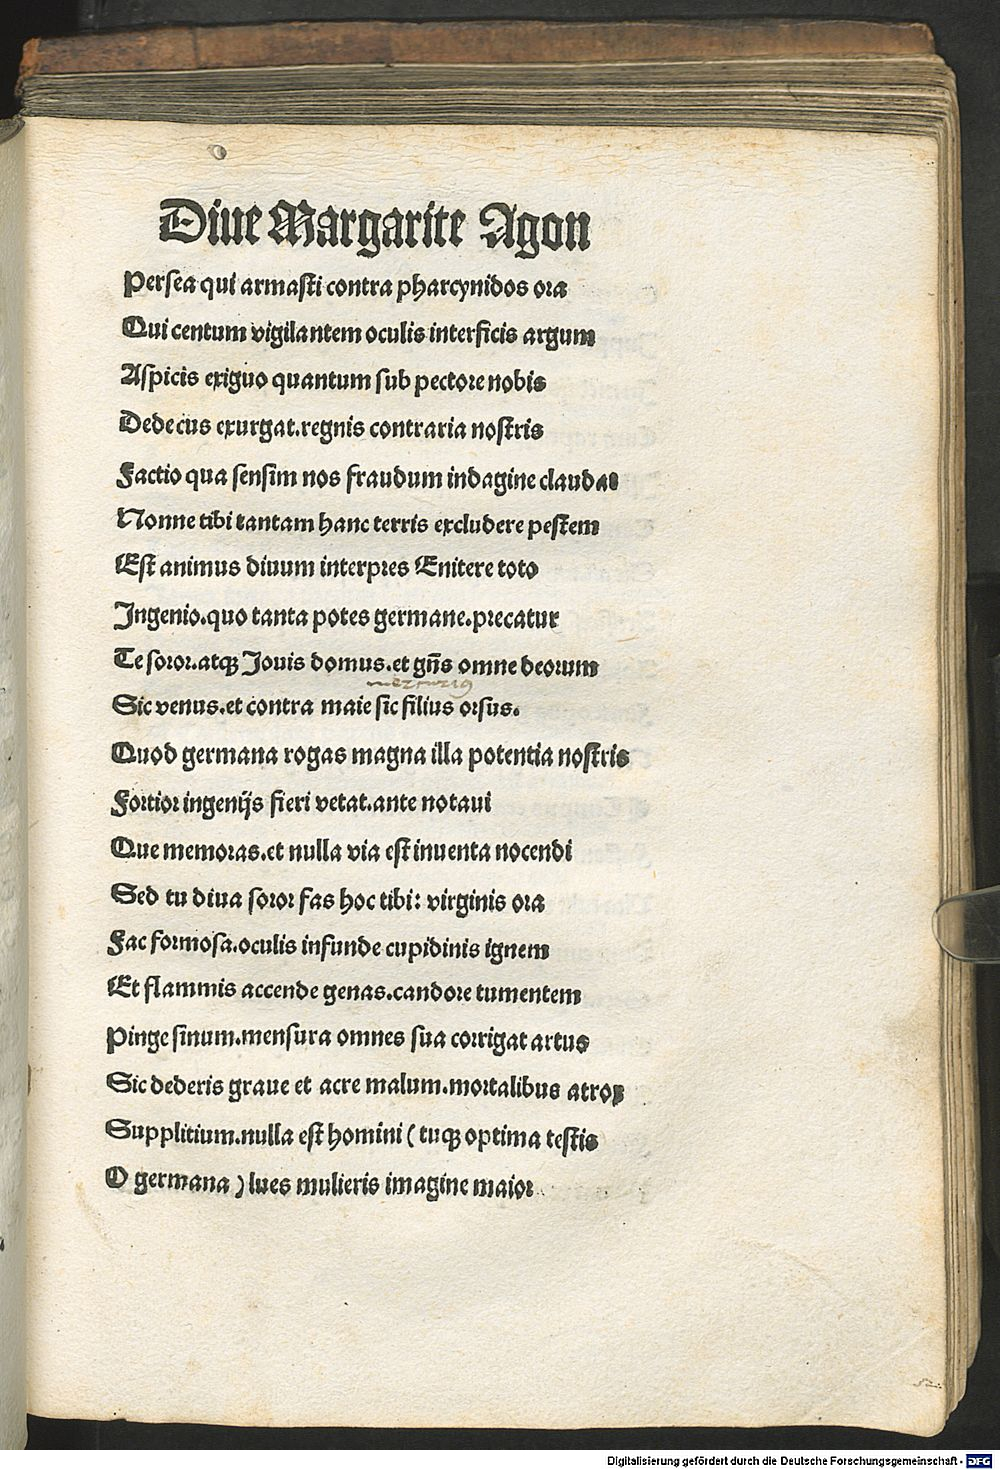 Diue Margarite Agon
Persea qui armasti contra pharcynidos ora
Qui centum vigilantem oculis interficis argum
Aspicis exiguo quantum sub pectore nobis
Dedecus exurgat.regnis contraria nostris
Factio qua sensim nos fraudum indagine claudat
Nonne tibi tantam hanc terris excludere pestem
Est animus diuum interpres Enitere toto
Ingenio.quo tanta potes germane.precatur
Te soror.atqꝫ Jouis domus.et gñs omne deorum
mercurius
Sic venus.et contra maie sic filius orsus.
Quod germana rogas magna illa potentia nostris
Fortior ingenijs fieri vetat.ante notaui
Que memoras.et nulla via est inuenta nocendi
Sed tu diua soror fas hoc tibi: virginis ora
Fac formosa.oculis infunde cupidinis ignem
Et flammis accende genas.candore tumentem
Pinge sinum.mensura omnes sua corrigat artus
Sic dederis graue et acre malum.mortalibus atrox
Supplitium.nulla est homini ( tuqꝫ optima testis
O germana ) lues mulieris imagine maior
Digitalisierung gefördert durch die Deutsche Forschungsgemeinschaft - DFG